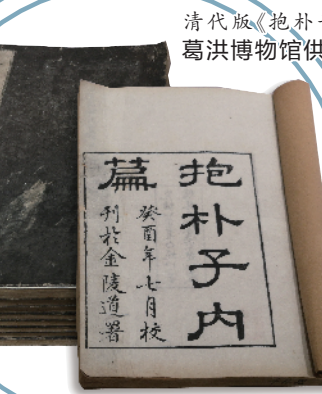 清代版《抱朴
葛洪博物馆供
抱朴子内
篇
癸酉年七月校
刊於金陵道署